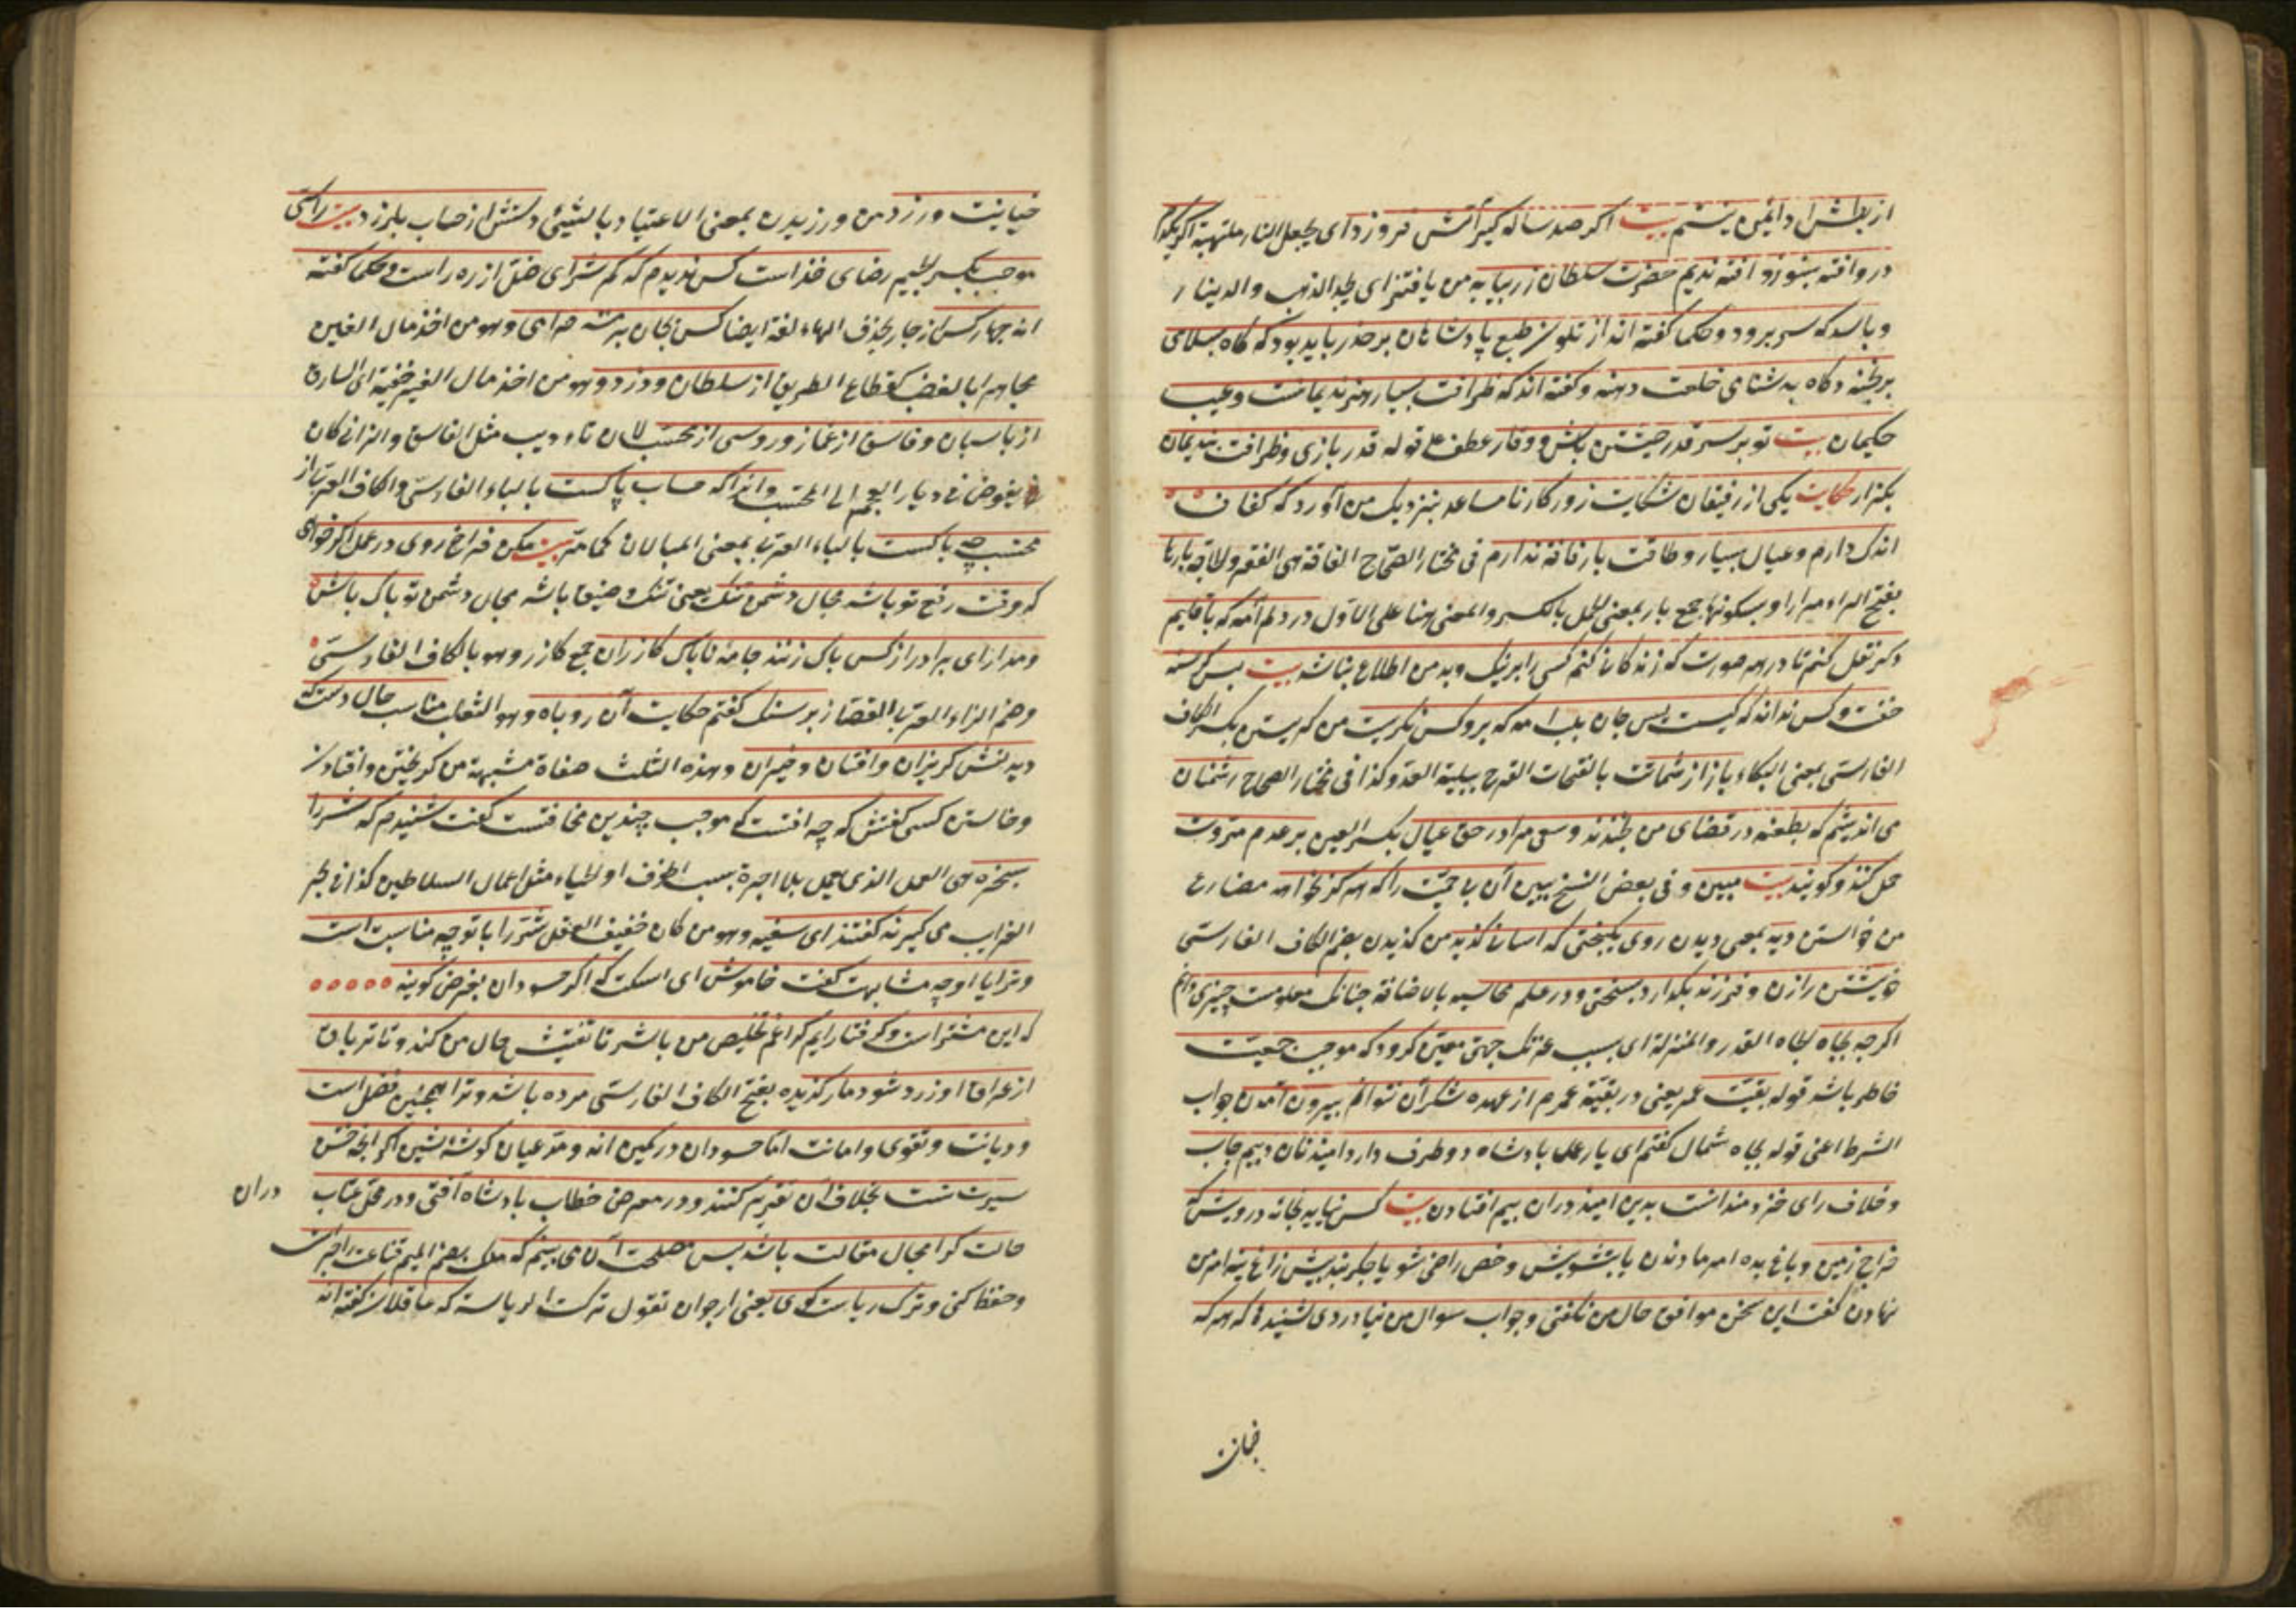 از بطش او ایمن نیستم بیت اکر صد ساله کبر آتش فروزد ای یجعل النار ملتهبة اکر یکدم
در وافتد بسوزد افتد ندیم حضرت سلطان زر بیابد من یافتن ای یجد الذهب والدینار
و باشد که سر برود و حکما کفته اند از تلون طبع پادشاهان بر حذر باید بود که کاه بسلامی
برنجند و کاه بدشنامی خلعت دهند و کفته اند که ظرافت بسیار هنر ندیمانست و عیب
حکیمان بیت تو بر سر قدر خویشتن باش و وقار عطف علی قوله قدر بازی و ظرافت بندیمان
بکذار حکایت یکی از رفیقان شکایت روزکار نامساعد بنزدیک من آورد که کفاف
اندک دارم و عیال بسیار و طاقت بار فاقه ندارم فی مختار الصحاح الفاقة هی الفقر و
بفتح الراء مرارا و بسکونها جمع بار بمعنی الحمل بالکسر والمعنی هنا علی الاول در دلم آمد که باقلیم
دکر نقل کنم تا در هر صورت که زندکانی کنم کسی را بر نیک و بد من اطلاع نباشد بیت بس کرسنه
خفت و کس ندانست که کیست بس جان بلب آمد که برو کس نکریست من کریستن بکسر الکاف
الفارسی بمعنی البکاء باز از شماتت بالفتحات الفرح ببلیة العدو کذا فی مختار الصحاح دشمنان
می اندیشم که بطعنه در قفای من بخندند و سعی مرا در حق عیال بکسر العین بر عدم مروت
حمل کنند و کویند بیت مبین و فی بعض النسخ ببین آن بی حمیت را که هرکز نخواهد مضارع
من خواستن دید بمعنی دیدن روی نیکبختی که آسانی کزیند من کزیدن بضم الکاف الفارسی
خویشتن را زن و فرزند بکذارد بسختی و در علم محاسبه بالاضافة چنانک معلومست چیزی دانم
اکر بجاه الجاه القدر والمنزلة ای بسبب عزتک جهتی معین کردد که موجب جمعیت
خاطر باشد قوله بقیت عمر یعنی در بقیة عمرم از عهده شکر آن نتوانم بیرون آمدن جواب
الشرط اعنی قوله بجاه شما کفتم ای یار عمل پادشاه دو طرف دارد امید نان و بیم جان
و خلاف رای خردمندانست بدین امید دران بیم افتادن بیت کس نیاید بخانه درویش که
خراج زمین و باغ بده امر من دادن یا بتشویش و غصه راضی شو یا جکربند پیش زاغ بنه امر من
نهادن کفت این سخن موافق حال من نکفتی و جواب سوال من نیاوردی نشنیدۀ که هر که
خیانت
خیانت ورزد من ورزیدن بمعنی الاعتیاد بالشیئ دستش از حساب بلرزد بیت راستی
موجب بکسر الجیم رضای خداست کس ندیدم که کم شد ای ضل از ره راست و حکما کفته
اند چهار کس از چار بحذف الهاء لغة ایضا کس بجان برنجند حرامی و هو من اخذ مال الغیر
مجاهرا بالغضب کقطاع الطریق از سلطان و دزد و هو من اخذ مال الغیر خفیة ای السارق
از پاسبان و فاسق از غماز و روسپی از محتسب لان تادیب مثل الفاسق والزانی کان
یفوض فی دیار العجم الی المحتسب و آنرا که حساب پاکست بالباء الفارسی و الکاف العربی از
محتسب چه باکست بالباء العربی بمعنی المبالات کما مر بیت مکن فراخ روی در عمل اکر خواهی
که وقت رفع تو باشد مجال دشمن تنک یعنی تنک و ضیقا باشد مجال دشمن تو پاک باش
و مدار ای برادر از کس باک زنند جامۀ ناپاک کازران جمع کازر و هو بالکاف الفارسی
و ضم الزاء العربی القصار بر سنک کفتم حکایت آن روباه و هو الثعلب مناسب حال تست که
دیدندش کریزان و افتان و خیزان و هذه الثلث صفات مشبهة من کریختن و افتادن
و خاستن کسی کفتش که چه آفتست که موجب چندین مخافتست کفت شنیدم که شتر را
بسخره هی العمل الذی یعمل بلا اجرة بسبب الخوف او الحیاء مثل اعمال السلاطین کذا فی بحر
الغرایب می کیرند کفتند ای سفیه و هو من کان خفیف العقل شتر را با تو چه مناسبت است
و ترا با او چه مشابهت کفت خاموش ای اسکت که اکر حسودان بغرض کویند
که این شترست و کرفتار آیم کرا غم تخلیص من باشد تا تفتیش حال من کند و تا تریاق
از عراق آوزرد شود مار کزیده بفتح الکاف الفارسی مرده باشد و ترا همچنین فضل است
و دیانت و تقوی و امانت اما حسودان در کمین اند و مدعیان کوشه نشین اکر آنچه حسن
سیرت تست بخلاف آن تقریر کنند و در معرض خطاب پادشاه آفتی و در محل عتاب
دران
حالت کرا مجال مقالت باشد بس مصلحت آن می بینم که ملک بضم المیم قناعت را حراست
و حفظ کنی و ترک ریاست کوی یعنی ارجو ان تقول ترکت الریاسة که عاقلان کفته اند